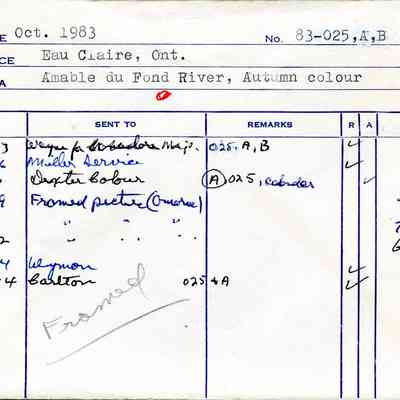 E Oct. 1983 No. 83-025,A,B
CE Eau Claire, Ont.
A Amable du Fond River, Autumn colour
SENT TO REMARKS R A
3 025, A, B ✓
6 Miller Service ✓
Dexter Colour (A) 025, calendar ✓
9 Framed picture
" " "
2 " " "
4 Wymon ✓
4 Carlton 025 + A ✓
Framed